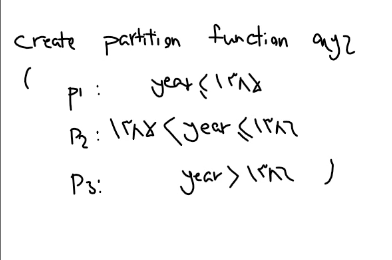 create partition function xyz
(
p1: year ≤ ۱۳۸۵
P2: ۱۳۸۵ < year ≤ ۱۳۸۶
P3: year > ۱۳۸۶ )